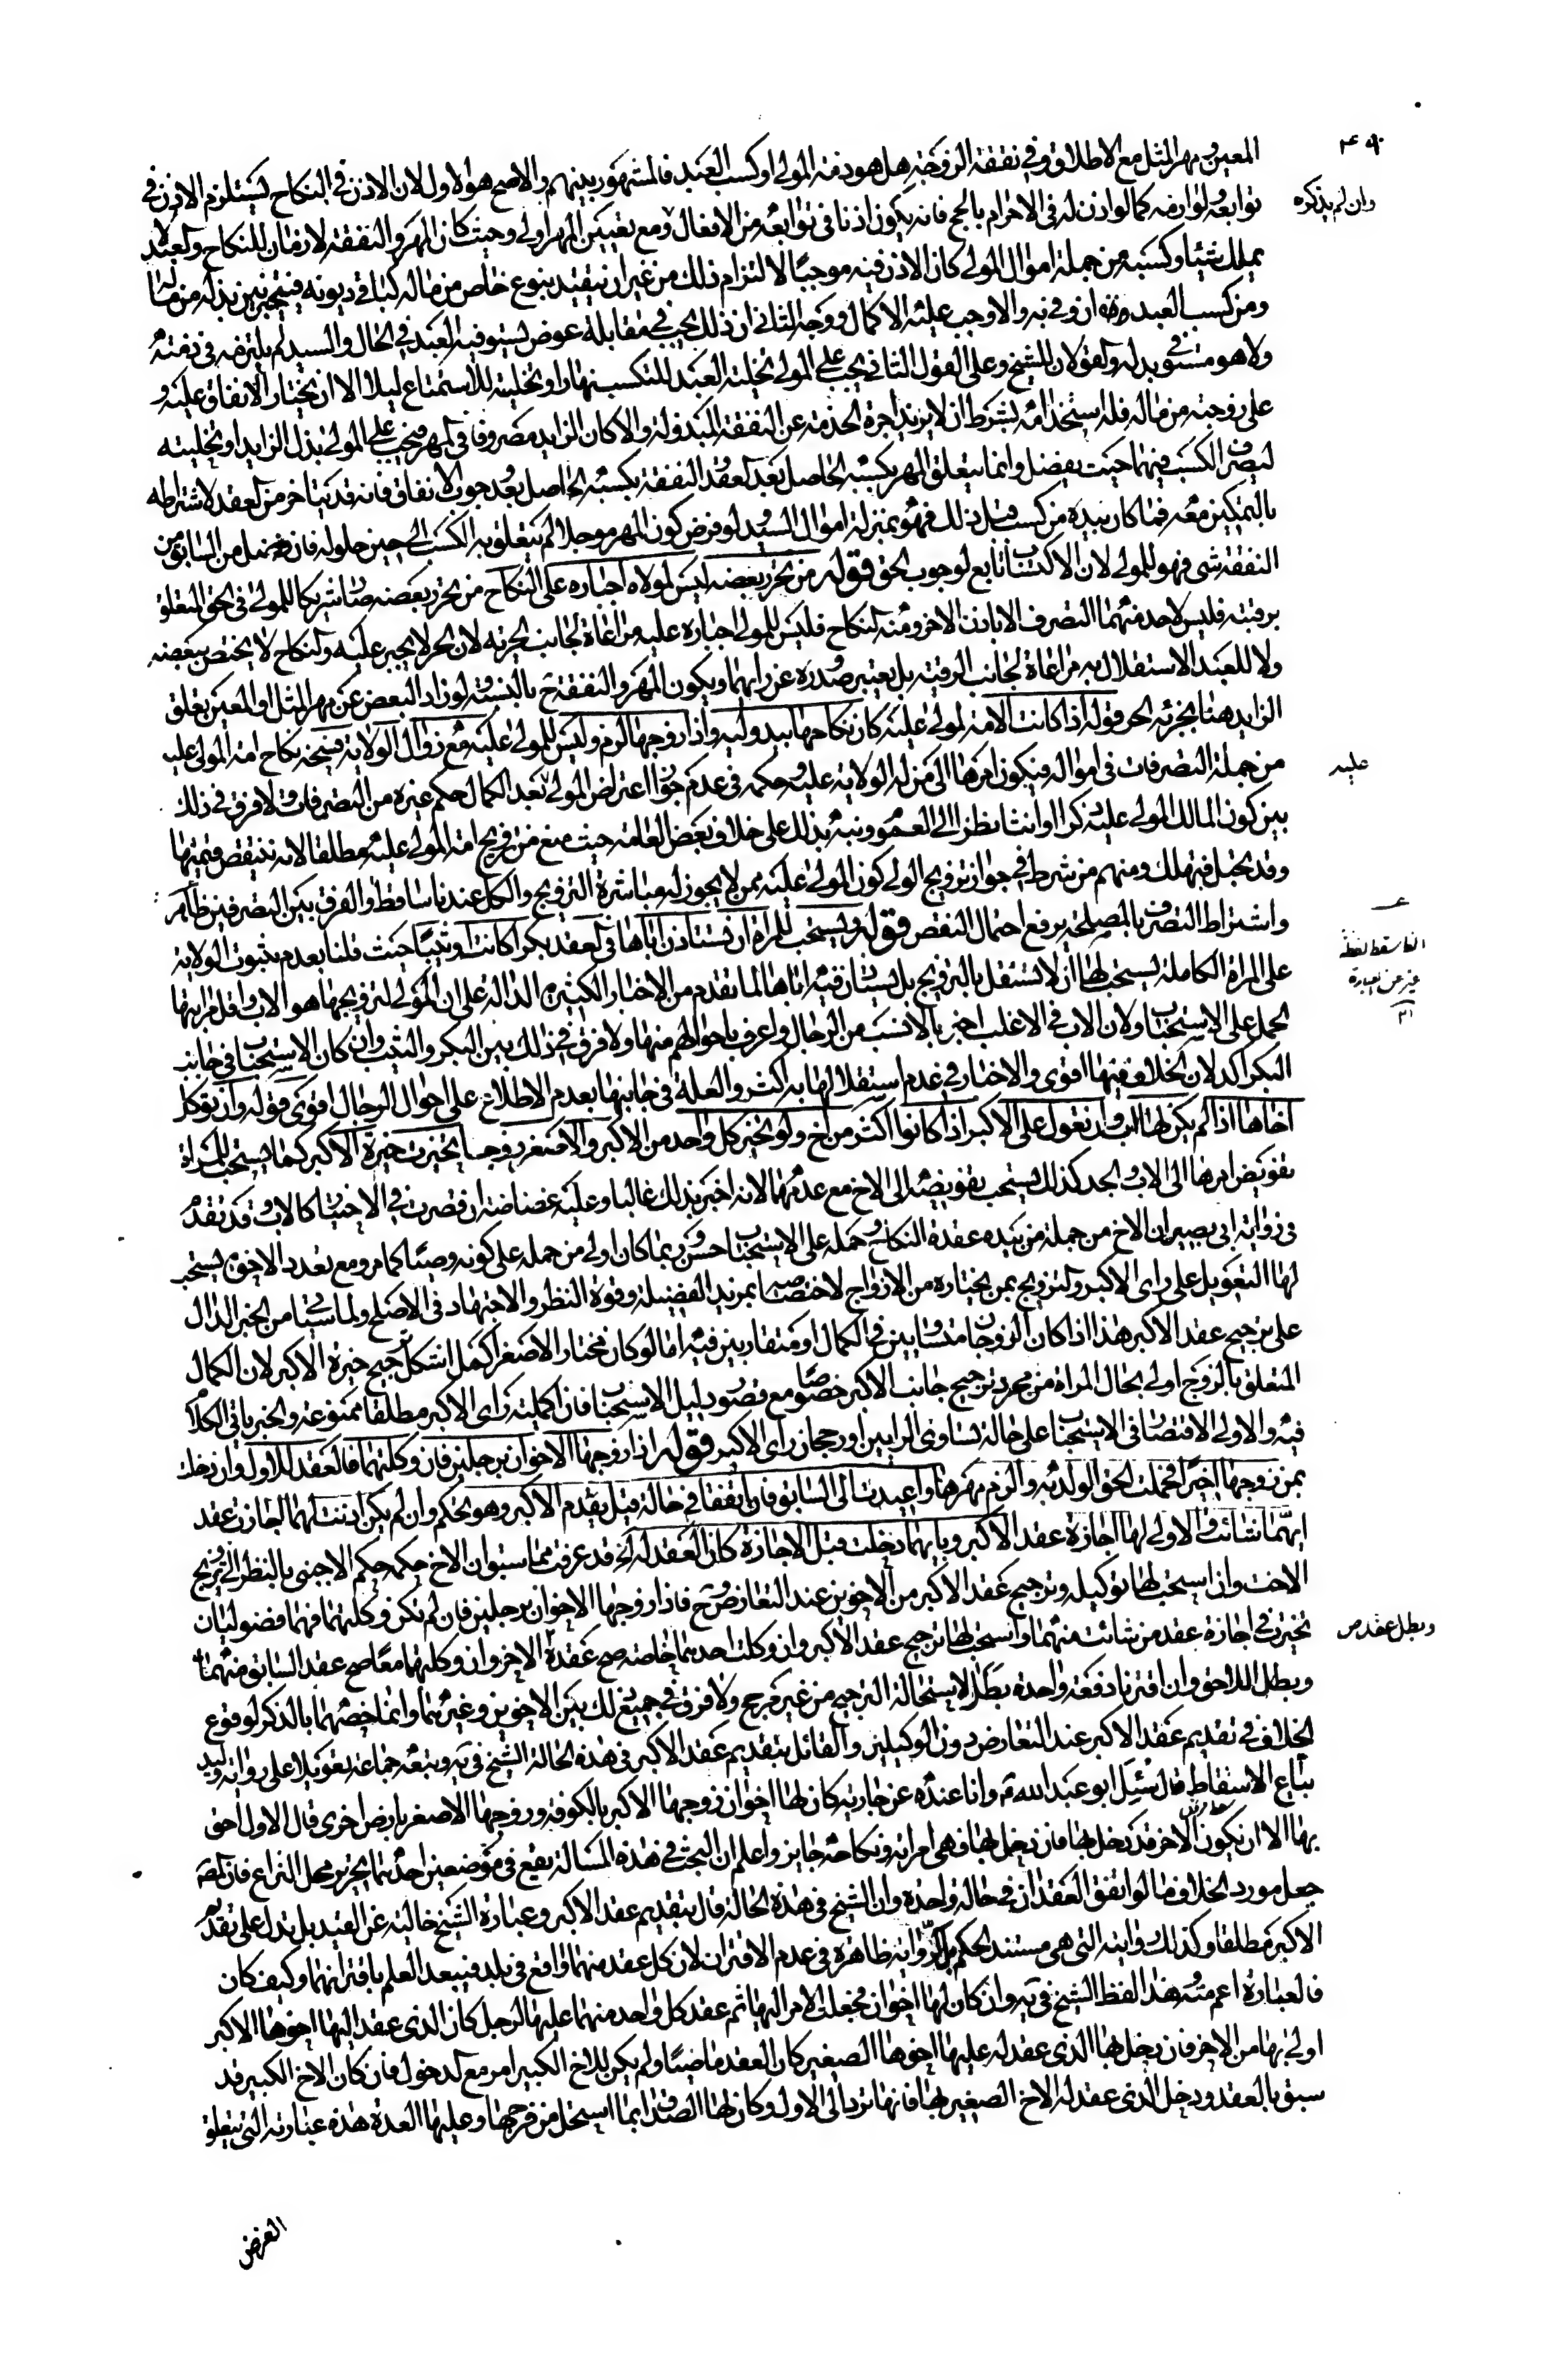 المعين ومهر المثل مع الاطلاق وفي نفقة الزوجة هل هو ذمة المولى او كسب العبد فالمشهور بينهم والاصح هو الاول لان الاذن في النكاح يستلزم الاذن في
توابعه ولوازمه كما لو اذن له في الاحرام بالحج فانه يكون اذنا في توابعه من الافعال ومع تعيين المهر اولى وحيث كان المهر والنفقة لازمان للنكاح والعبد لا
يملك شيئا وكسبه من جملة اموال المولى كان الاذن فيه موجبا لالتزام ذلك من غير ان يتقيد بنوع خاص من ماله كباقي ديونه فيتخير بين بذله من ماله
ومن كسب العبد ان وفى به والا وجب عليه الاكمال ووجه الثاني ان ذلك يجب في مقابلة عوض يستوفيه العبد في الحال والسيد لم يلتزمه في ذمته
ولا هو مستوفي بدله والقولان للشيخ وعلى القول الثاني يجب على المولى تخلية العبد للتكسب نهارا وتخليته للاستمتاع ليلا الا ان يختار الانفاق عليه و
على زوجته من ماله فله استخدامه بشرط ان لا يزيد اجرة الخدمة عن النفقة المبذولة والا كان الزايد مصروفا في المهر فيجب على المولى بذل الزايد او تخليته
ليصرف الكسب فيهما حيث يفضل وانما يتعلق المهر بكسبه الحاصل بعد العقد والنفقة بكسبه الحاصل بعد وجوب الانفاق فانه قد يتاخر من العقد لاشتراطه
بالتمكين معه فما كان بيده من كسب قبل ذلك فهو بمنزلة اموال السيد ولو فرض كون المهر موجلا لم يتعلق به الكسب الى حين حلوله فان فضل من السابق من
النفقة شي فهو للمولى لان الاكتساب تابع لوجوب الحق قوله من تحرر بعضه ليس لمولاه اجباره على النكاح من تحرر بعضه صار شريكا للمولى في الحق المتعلق
برقبته فليس لاحد منهما التصرف الا باذن الاخر ومنه النكاح فليس للمولى اجباره عليه مراعاة لجانب الحرية لان الحر لا يجبر عليه والنكاح لا يختص ببعضه
ولا للعبد الاستقلال به مراعاة لجانب الرقية بل يعتبر صدوره عن رايهما ويكون المهر والنفقة ح بالنسبة ولو زاد البعض عن مهر المثل او المعين تعلق
الزايد هنا بجزئه الحر قوله اذا كانت الامة لمولى عليه كان نكاحها بيد وليه واذا زوجها لزم وليس للمولى عليه مع زوال الولاية فسخه نكاح امة المولى عليه
من جملة التصرفات في امواله فيكون امرها الى من له الولاية عليه وحكمه في عدم جواز اعتراض المولى بعد الكمال حكم غيره من التصرفات ولا فرق في ذلك
بين كون المالك المولى عليه ذكرا او انثى نظرا الى العموم ونبه بذلك على خلاف بعض العامة حيث منع من تزويج امة المولى عليه مطلقا لانه ينتقص قيمتها
وقد تحبل فتهلك ومنهم من شرط في جواز تزويج الولي كون المولى عليه ممن لا يجوز له مباشرة التزويج والكل عندنا ساقط والفرق بين التصرفين ظاهر
واشتراط التصرف بالمصلحة يرفع احتمال النقص قوله ويستحب للمراة ان تستاذن اباها في العقد بكرا كانت او ثيبا حيث قلنا بعدم ثبوت الولاية
على المراة الكاملة يستحب لها ان لا تستقل بالتزويج بل يستاذن فيه اباها لما تقدم من الاخبار الكثيرة الدالة على ان المولى لتزويجها هو الاب واقل مراتبها
الحمل على الاستحباب ولان الاب في الاغلب اخبر بالانسب من الرجال واعرف باحوالهم منها ولا فرق في ذلك بين البكر والثيب وان كان الاستحباب في جانب
البكر اكد لان الخلاف فيها اقوى والاخبار في عدم استقلالها به اكثر والعلة في جانبها بعدم الاطلاع على احوال الرجال اقوى قوله وان توكل
اخاها اذا لم يكن لها اب وان تعول على الاكبر اذا كانوا اكثر من اخ ولو تخير كل واحد من الاكبر والاصغر زوجا تخيرت خيرة الاكبر كما يستحب للمراة
تفويض امرها الى الاب والجد كذلك يستحب تفويضه الى الاخ مع عدمهما لانه اخبر بذلك غالبا وعليه غضاضة ان قصرت في الاختيار كالاب وقد تقدم
في رواية ابي بصير ان الاخ من جملة من بيده عقدة النكاح وحمله على الاستحباب حسن وربما كان اولى من حمله على كونه وصيا كما مر ومع تعدد الاخوة يستحب
لها التعويل على راى الاكبر والتزويج بمن يختاره من الازواج لاختصاصه بمزيد الفضيلة وقوة النظر والاجتهاد في الاصلح ولما سياتي من الخبر الدال
على ترجيح عقد الاكبر هذا اذا كان الزوجان متساويين في الكمال او متقاربين فيه اما لو كان مختار الاصغر اكمل اشكل ترجيح خيرة الاكبر لان الكمال
المتعلق بالزوج اولى بحال المراة من مجرد ترجيح جانب الاكبر خصوصا مع قصور دليل الاستحباب فان اكملية راى الاكبر مطلقا ممنوعة والخبر ياتي الكلام
فيه والاولى الاقتصار في الاستحباب على حالة تساوى الرايين او رجحان راى الاكبر قوله اذا زوجها الاخوان برجلين فان وكلتهما فالعقد للاول وان دخلت
بمن تزوجها اخيرا فحملت الحق الولد به والزم مهرها واعيدت الى السابق فان اتفقا في حالة قيل يقدم الاكبر وهو تحكم وان لم يكن اذنت لهما اجازت عقد
ايهما شائت والاولى لها اجازة عقد الاكبر وبايهما دخلت قبل الاجازة كان العقد له الخ قد عرفت مما سبق ان الاخ حكمه حكم الاجنبي بالنظر الى تزويج
الاخت وان استحب لها توكيله وترجيح عقد الاكبر من الاخوين عند التعارض وح فاذا زوجها الاخوان برجلين فان لم تكن وكلتهما فهما فضوليان
تتخير في اجازة عقد من شائت منهما وان استحب لها ترجيح عقد الاكبر وان وكلت احدهما خاصة صح عقده الاخر وان وكلتهما معا صح عقد السابق منهما
وبطل اللاحق وان اقترنا دفعة واحدة بطلا لاستحالة الترجيح من غير مرجح ولا فرق في جميع ذلك بين الاخوين وغيرهما وانما خصهما بالذكر لوقوع
الخلاف في تقديم عقد الاكبر عند التعارض دون الوكيلين والقائل بتقديم عقد الاكبر في هذه الحالة الشيخ في يه وتبعه جماعة تعويلا على رواية وليد
بياع الاسفاط قال سئل ابو عبد الله ع وانا عنده عن جارية كان لها اخوان زوجها الاكبر بالكوفة وزوجها الاصغر بارض اخرى قال الاول احق
بها الا ان يكون الاخر قد دخل بها فان دخل بها فهى امراته ونكاحه جايز واعلم ان البحث في هذه المسالة يقع في موضعين احدهما تحرير محل النزاع فان المصه
جعل مورد الخلاف ما لو اتفق العقدان في حالة واحدة وان الشيخ في هذه الحالة قال بتقديم عقد الاكبر وعبارة الشيخ خالية عن القيد بل تدل على تقدم
الاكبر مطلقا وكذلك روايته التى هى مستند الحكم بل الرواية ظاهرة في عدم الاقتران لان كل عقد منهما واقع في بلد فيبعد العلم باقترانهما وكيف كان
فالعبارة اعم منه وهذا لفظ الشيخ في يه وان كان لها اخوان فجعلت الامر اليهما ثم عقد كل واحد منهما عليها لرجل كان الذى عقد اليها اخوها الاكبر
اولى بها من الاخر فان دخل بها الذى عقد له عليها اخوها الصغير كان العقد ماضيا ولم يكن للاخ الكبير امر مع الدخول فان كان الاخ الكبير قد
سبق بالعقد ودخل الذى عقد له الاخ الصغير بها فانها ترد الى الاول وكان لها الصداق بما استحل من فرجها وعليها العدة هذه عبارته التى يتعلق
وان لم يذكره
عليه
وبطل عقد ص
الغرض